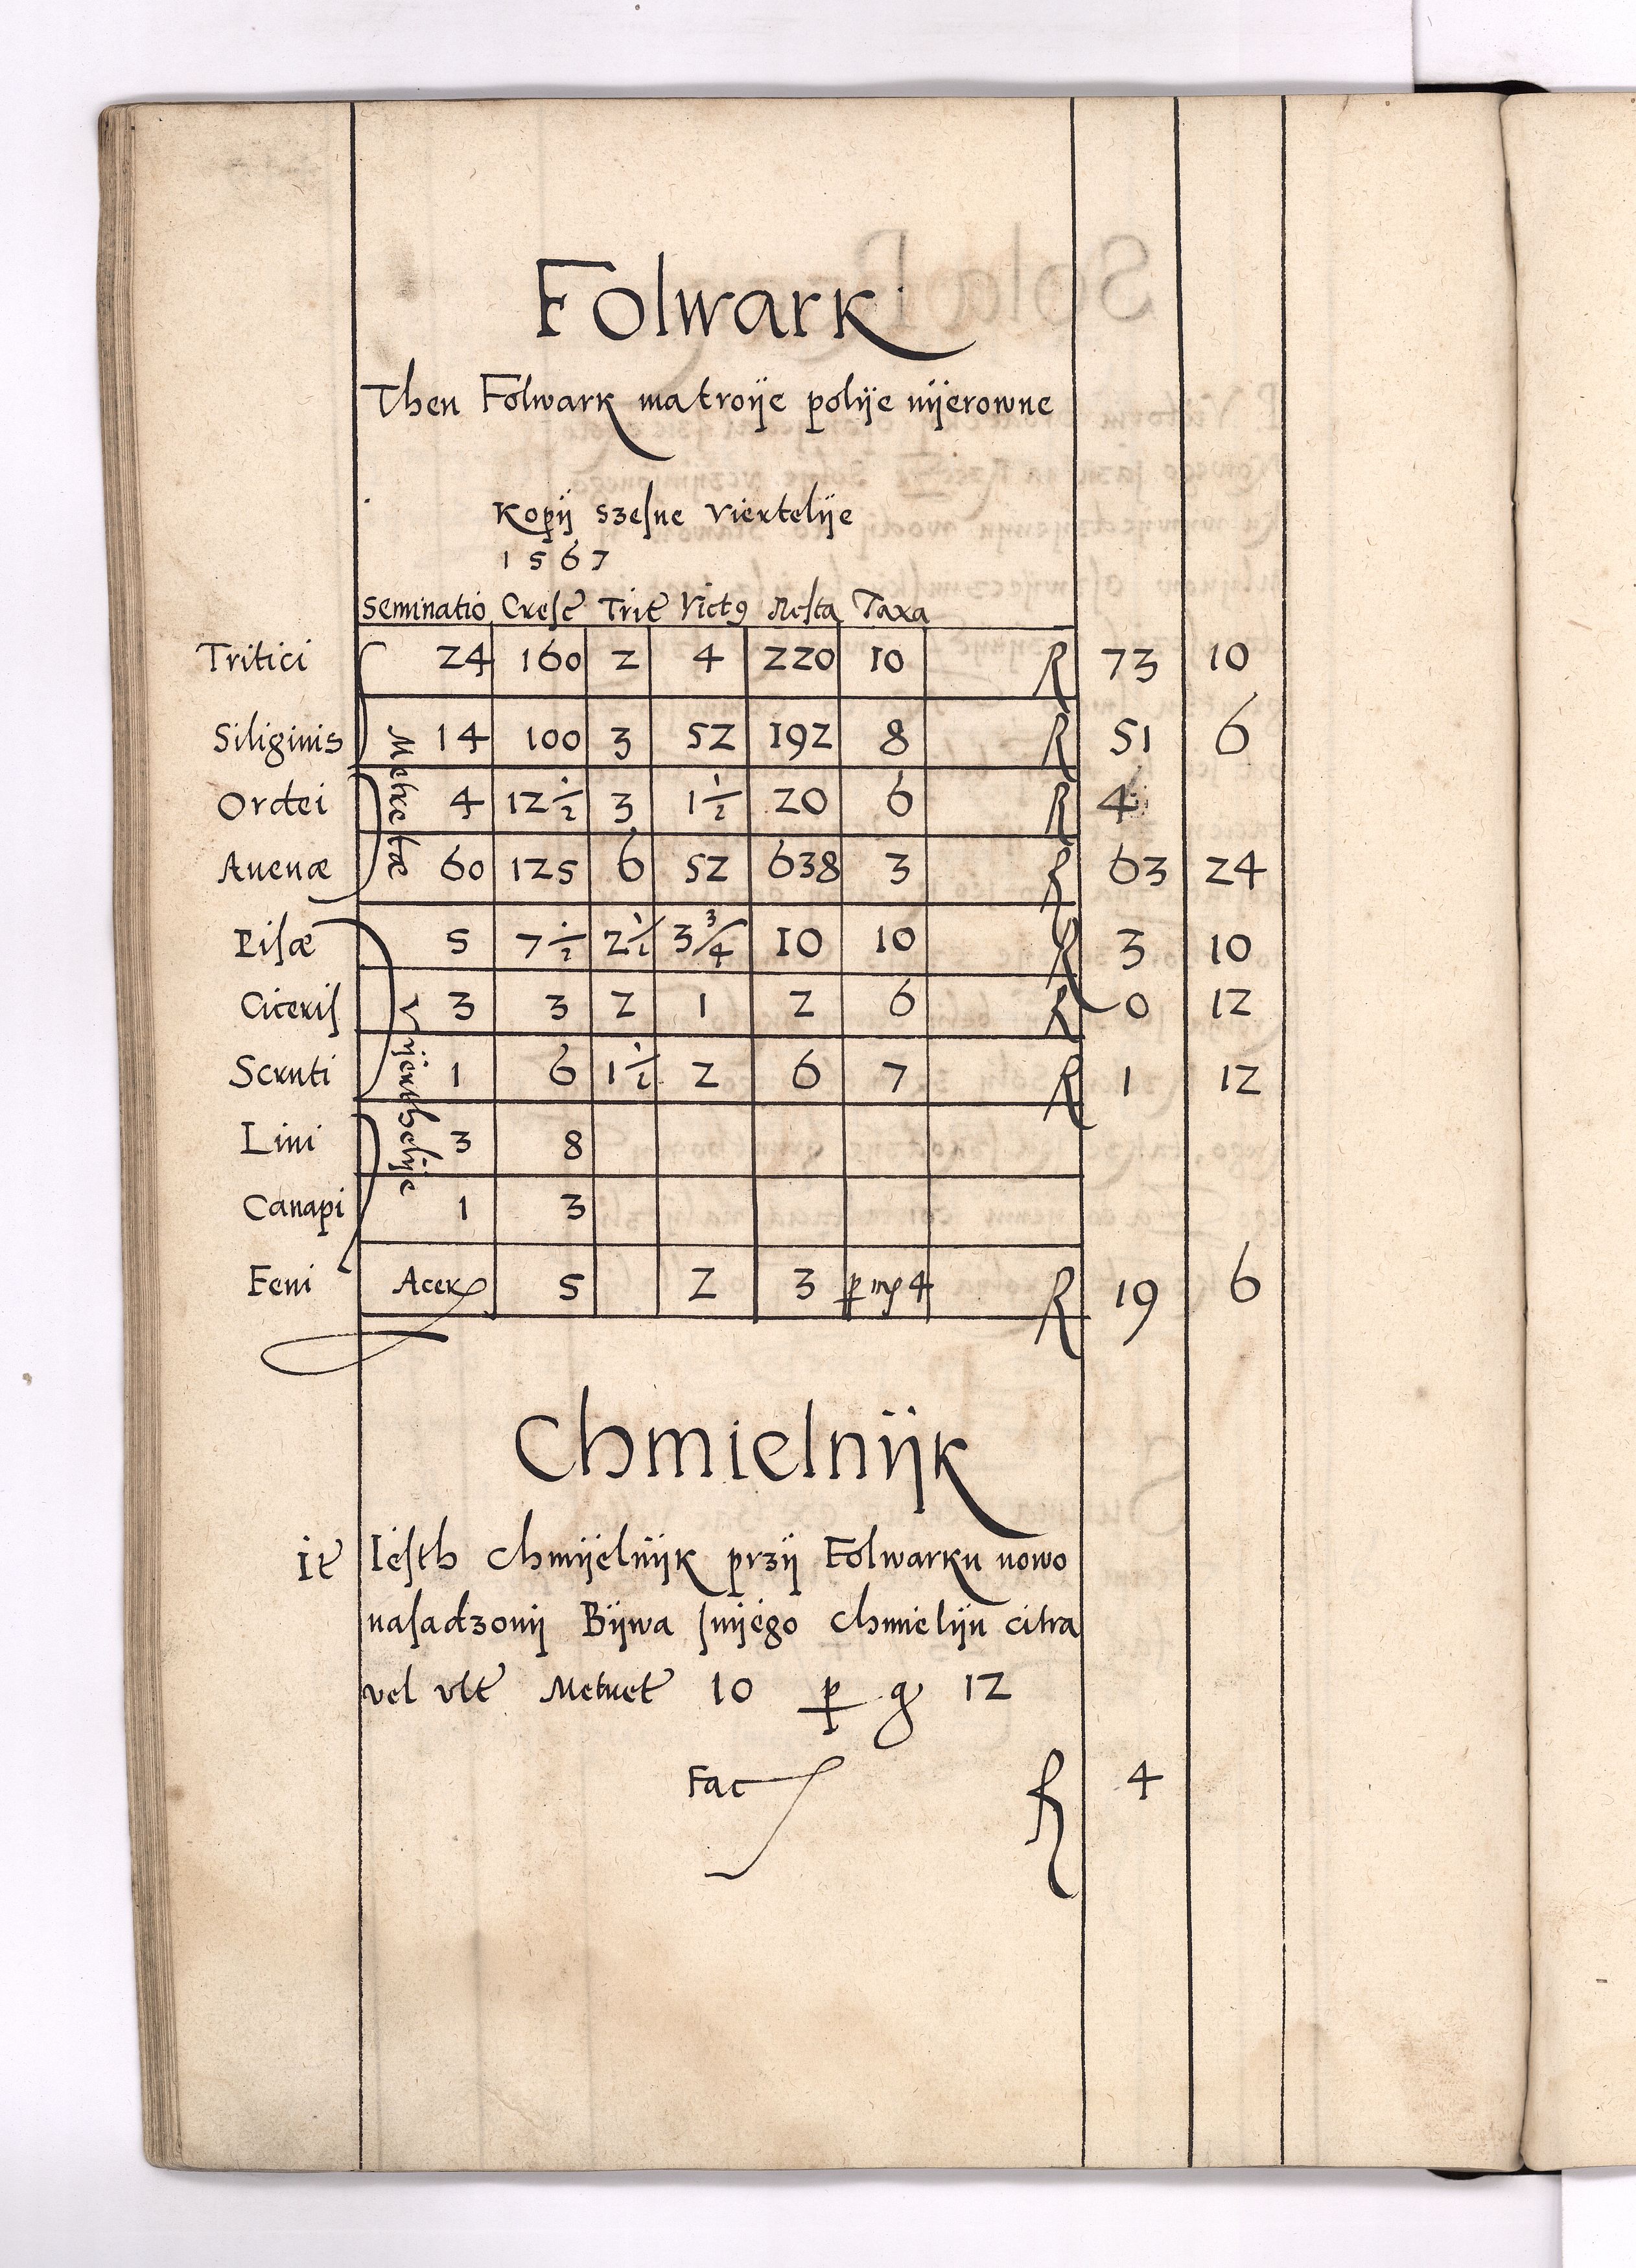 Folwark
Then Folwark ma troije polije nijerowne
Kopij szesne Viertelije
1567
Seminatio Cresc̃ Trit̃ Vict9 Resta Taxa
Tritici 24 160 2 4 220 10 R 73 10
Siliginis 14 100 3 52 192 8 R 51 6
Ordei 4 12½ 3 1½ 20 6 R 4
Auenæ 60 125 6 52 638 3 R 63 24
Metretæ
Pisæ 5 7½ 2½ 3¾ 10 10 R 3 10
Ciceris 3 3 2 1 2 6 R 0 12
Scruti 1 6 1½ 2 6 7 R 1 12
Lini 3 8
Canapi 1 3
Vijerthelije
Feni Acer 5 2 3 p 4 R 19 6
Chmielnijk
It̃ Iesth Chmijelnijk przij Folwarku nowo
nasadzonij Bijwa snijego chmielijn citra
vel vlt̃ Metret̃ 10 p g 12
Fac R 4